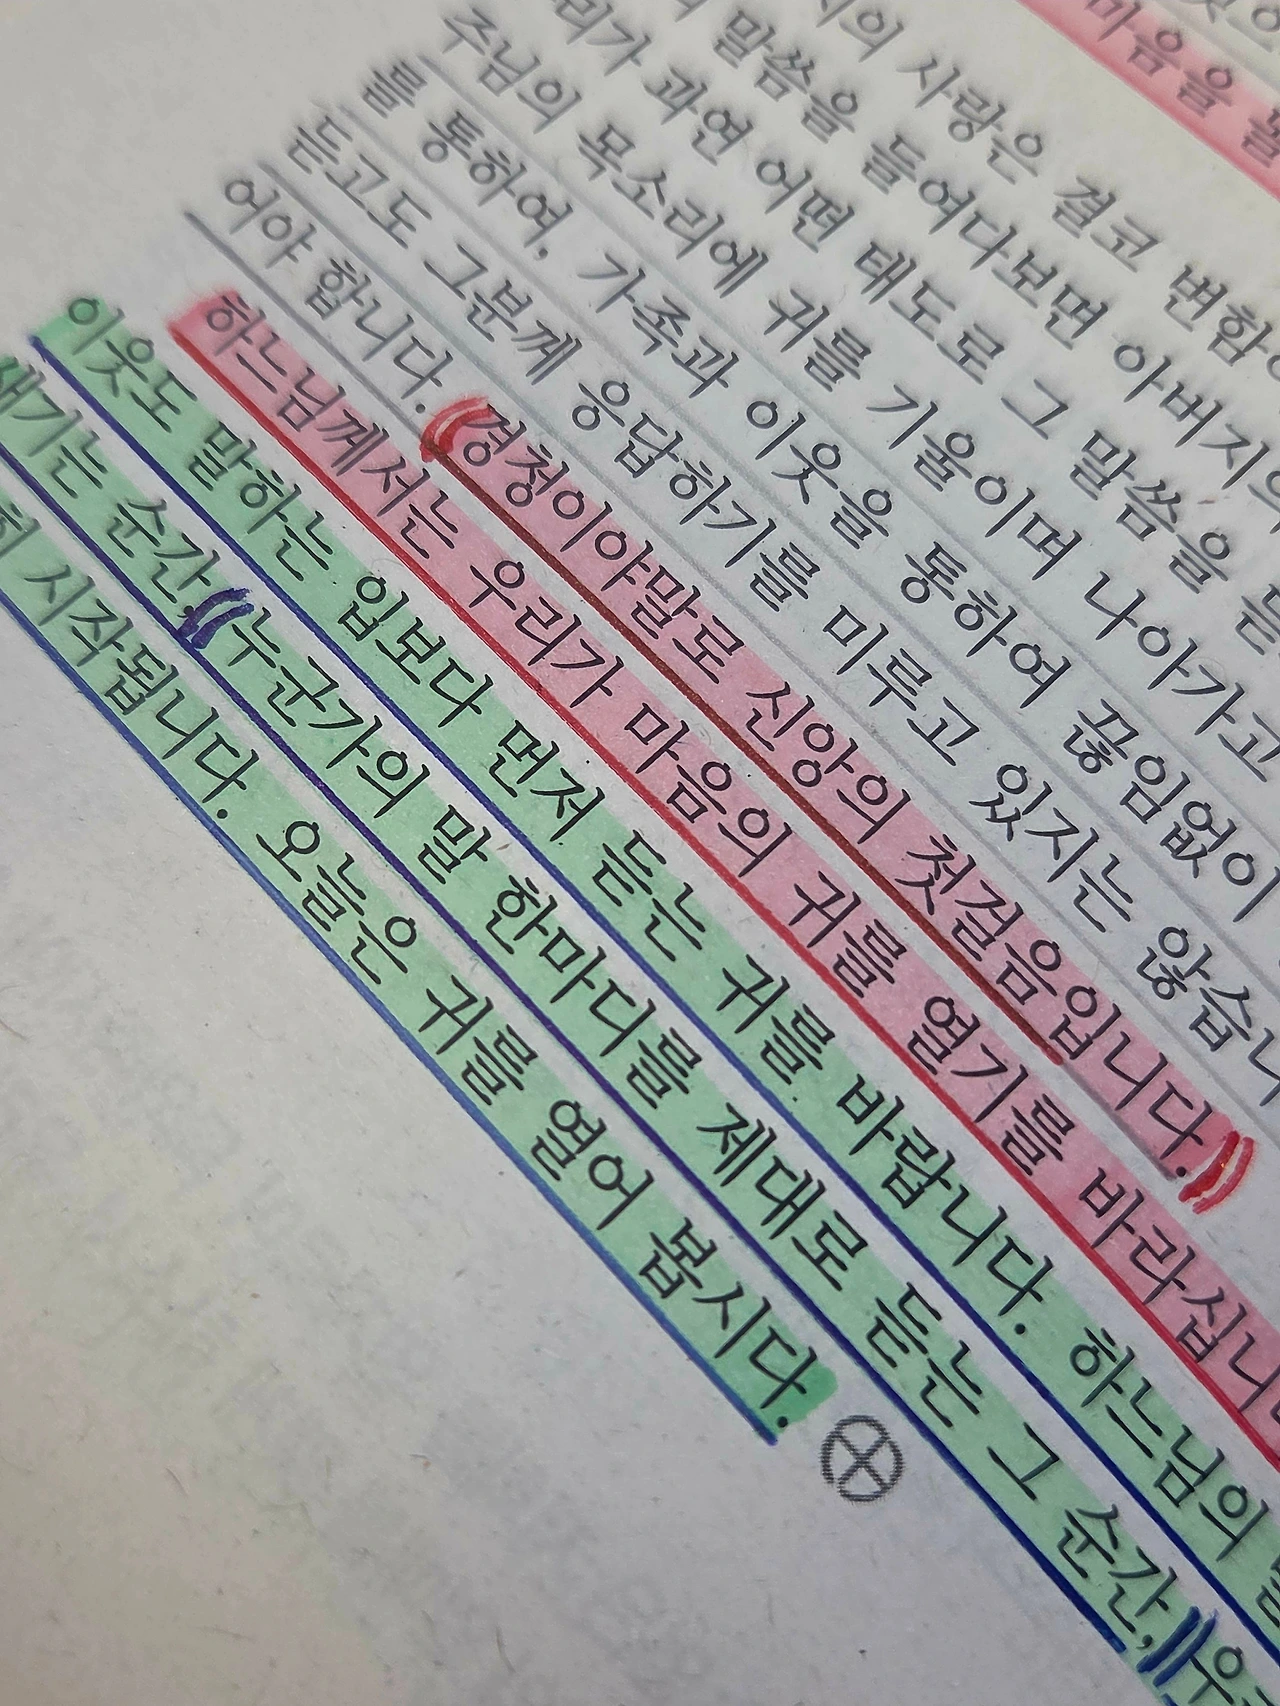 마음을
사랑은 결코 변함
말씀을 들여다보면 아버지의
과연 어떤 태도로 그 말씀을
주님의 목소리에 귀를 기울이며 나아가고
를 통하여, 가족과 이웃을 통하여 끊임없이
듣고도 그분께 응답하기를 미루고 있지는 않습니
어야 합니다. 경청이야말로 신앙의 첫걸음입니다.
하느님께서는 우리가 마음의 귀를 열기를 바라십니
이웃도 말하는 입보다 먼저 듣는 귀를 바랍니다. 하느님의
새기는 순간, 누군가의 말 한마디를 제대로 듣는 그 순간,
시작됩니다. 오늘은 귀를 열어 봅시다.